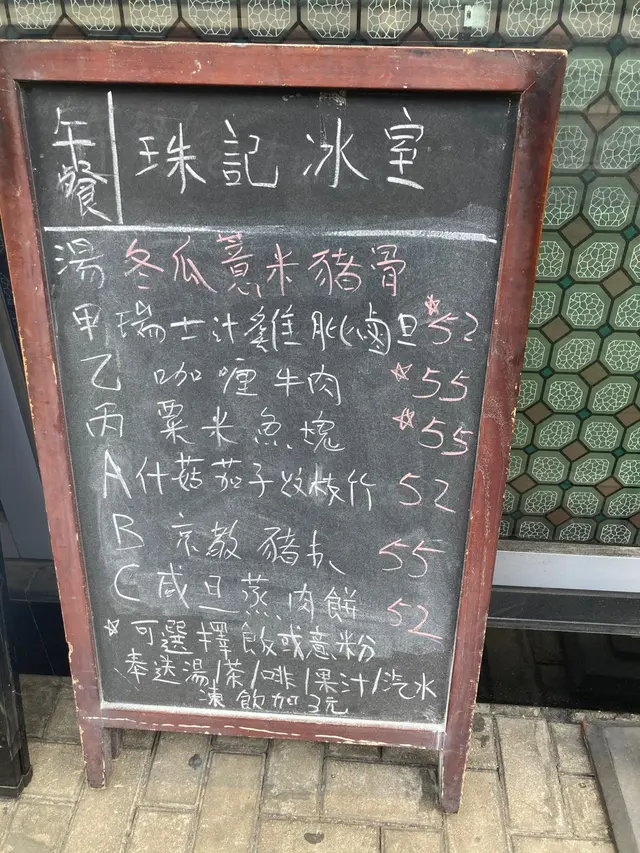 午餐 珠記冰室
湯 冬瓜薏米豬骨
甲 瑞士汁雞肶鹵旦 ☆52
乙 咖喱牛肉 ☆55
丙 粟米魚塊 ☆55
A 什菇茄子炆枝竹 52
B 京都豬扒 55
C 咸旦蒸肉餅 52
☆可選擇飯或意粉
奉送湯/茶/啡/果汁/汽水
凍飲加3元